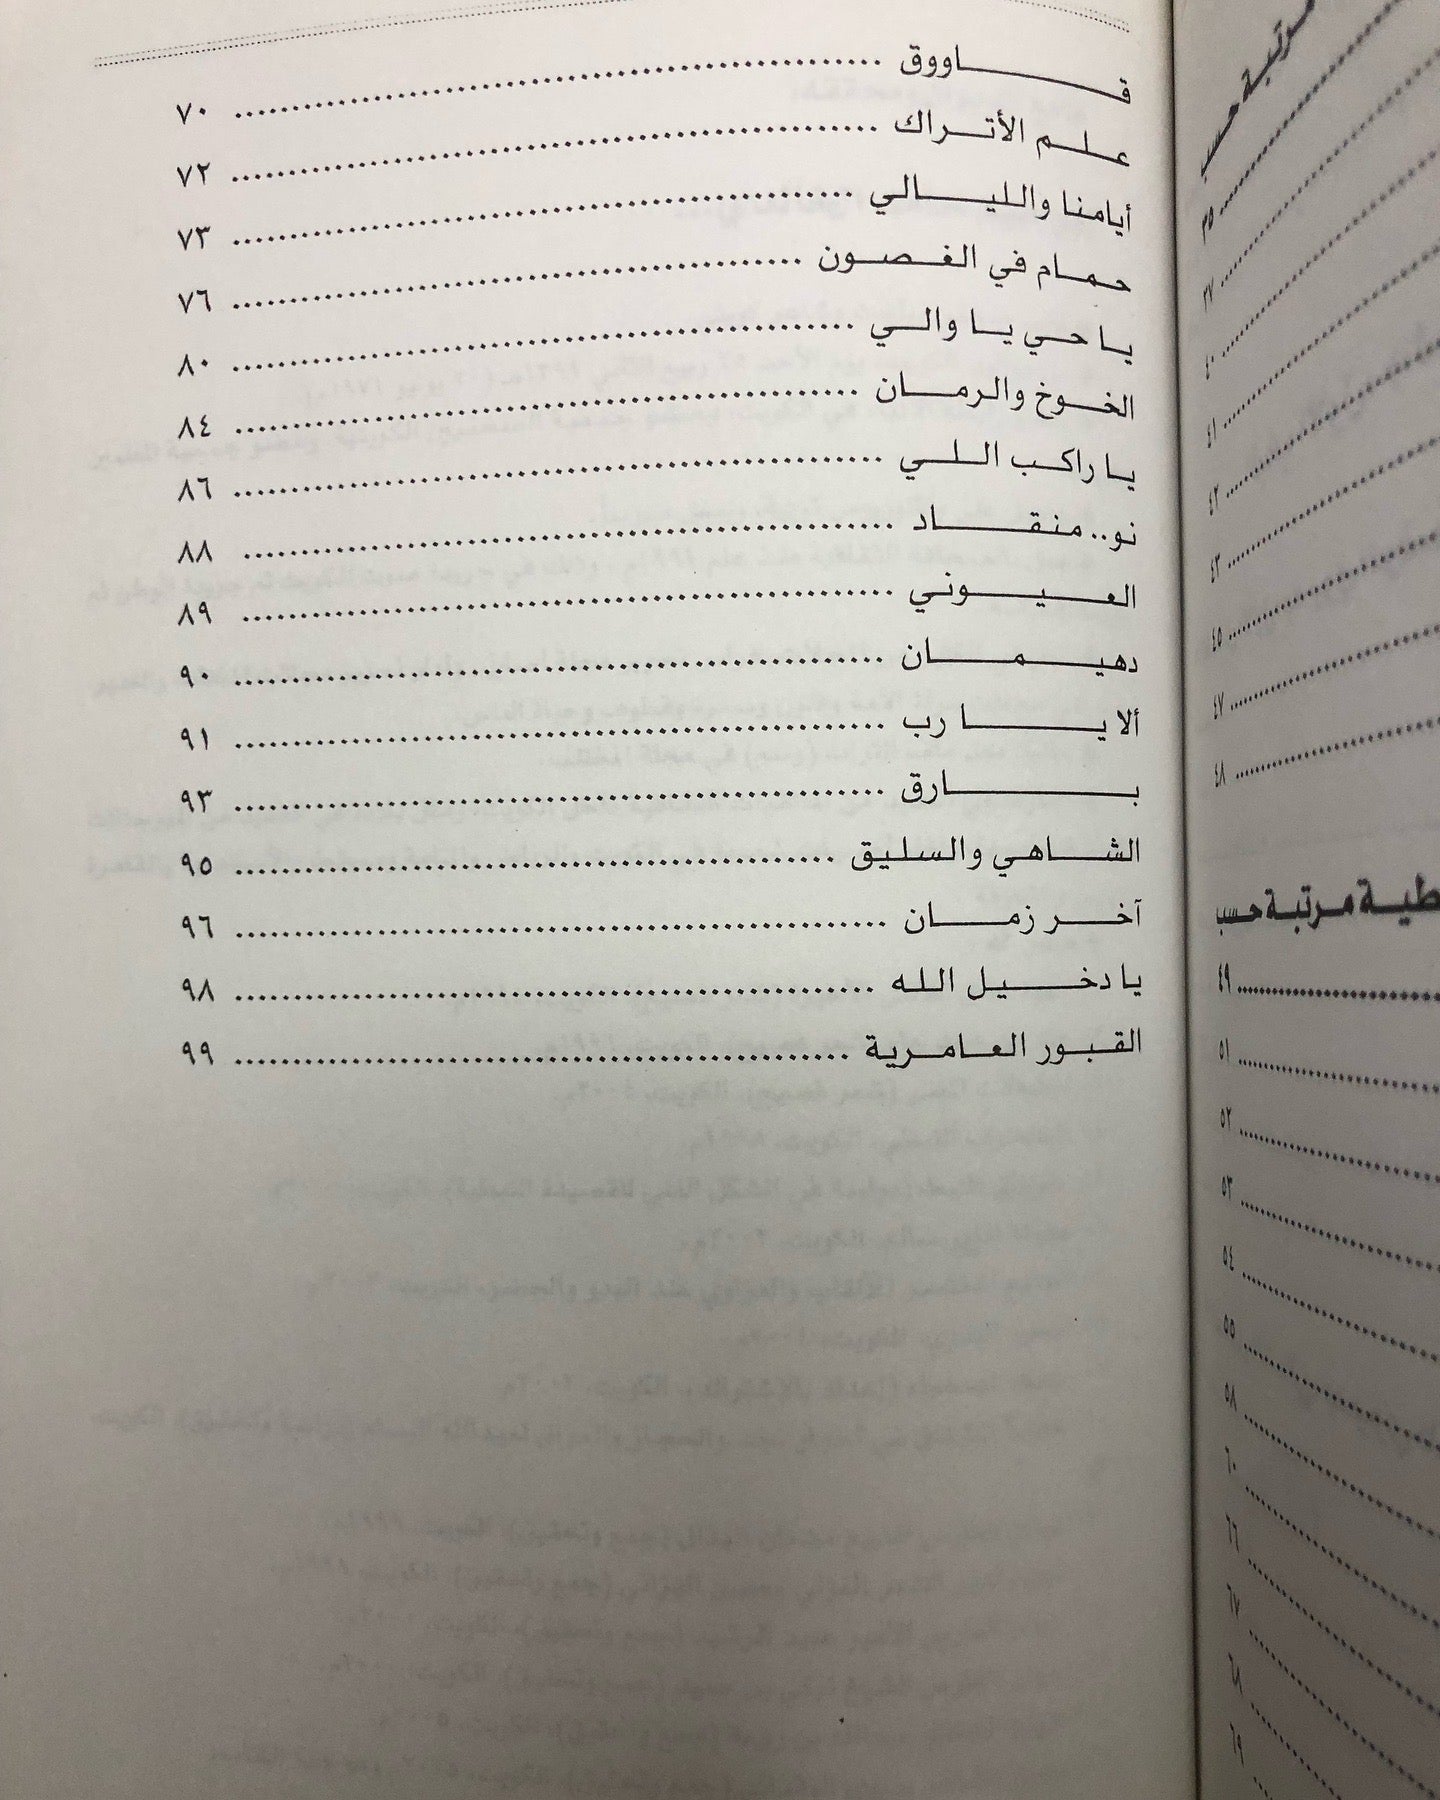 قاووق ........ ٧٠
علم الأتراك ........ ٧٢
أيامنا والليالي ........ ٧٣
حمام في الغصون ........ ٧٦
يا حي يا والي ........ ٨٠
الخوخ والرمان ........ ٨٤
يا راكب اللي ........ ٨٦
نو.. منقاد ........ ٨٨
العيوني ........ ٨٩
دهيمان ........ ٩٠
ألا يا رب ........ ٩١
بارق ........ ٩٣
الشاهي والسليق ........ ٩٥
آخر زمان ........ ٩٦
يا دخيل الله ........ ٩٨
القبور العامرية ........ ٩٩
مرتبة حسب
٣٥
٣٧
٤٠
٤١
٤٢
٤٣
٤٥
٤٧
٤٨
مرتبة حسب
٤٩
٥١
٥٢
٥٣
٥٤
٥٥
٥٨
٦٠
٦٦
٦٧
٦٨
٦٩